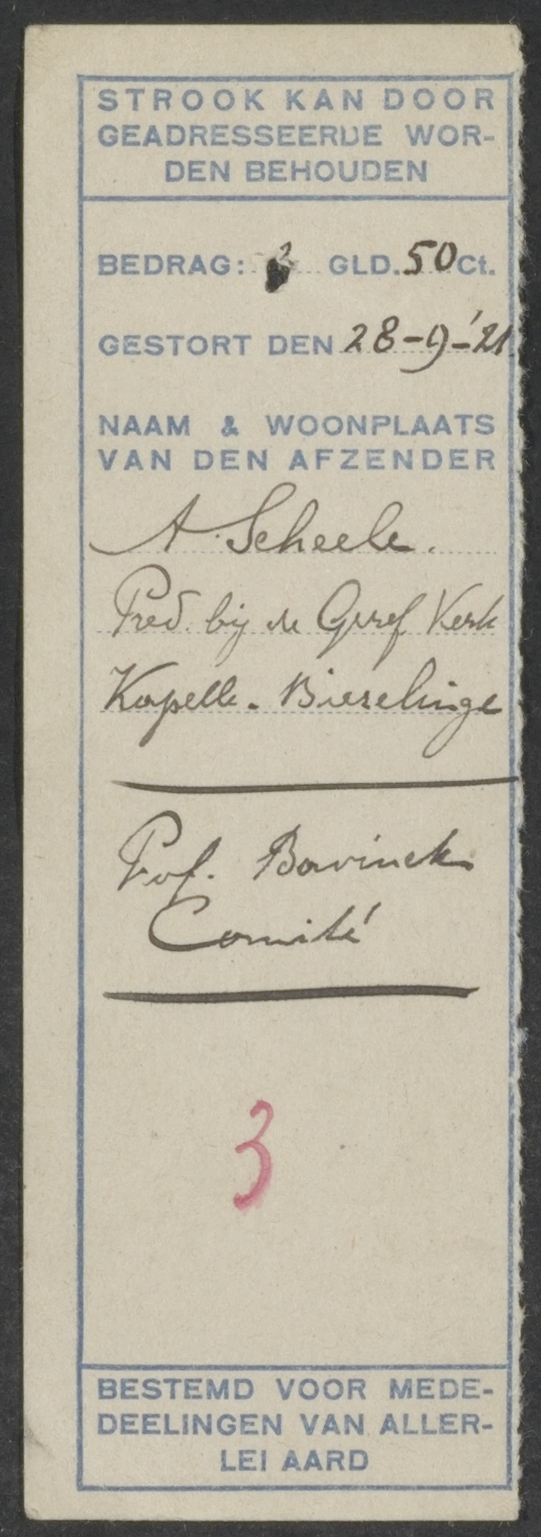 STROOK KAN DOOR
GEADRESSEERDE WOR-
DEN BEHOUDEN
BEDRAG: GLD. 50 Ct.
GESTORT DEN 28-9-'21
NAAM & WOONPLAATS
VAN DEN AFZENDER
A. Scheele.
Pred. bij de Geref Kerk
Kapelle. Biezelinge
Prof. Bavinck
Comité
3
BESTEMD VOOR MEDE-
DEELINGEN VAN ALLER-
LEI AARD